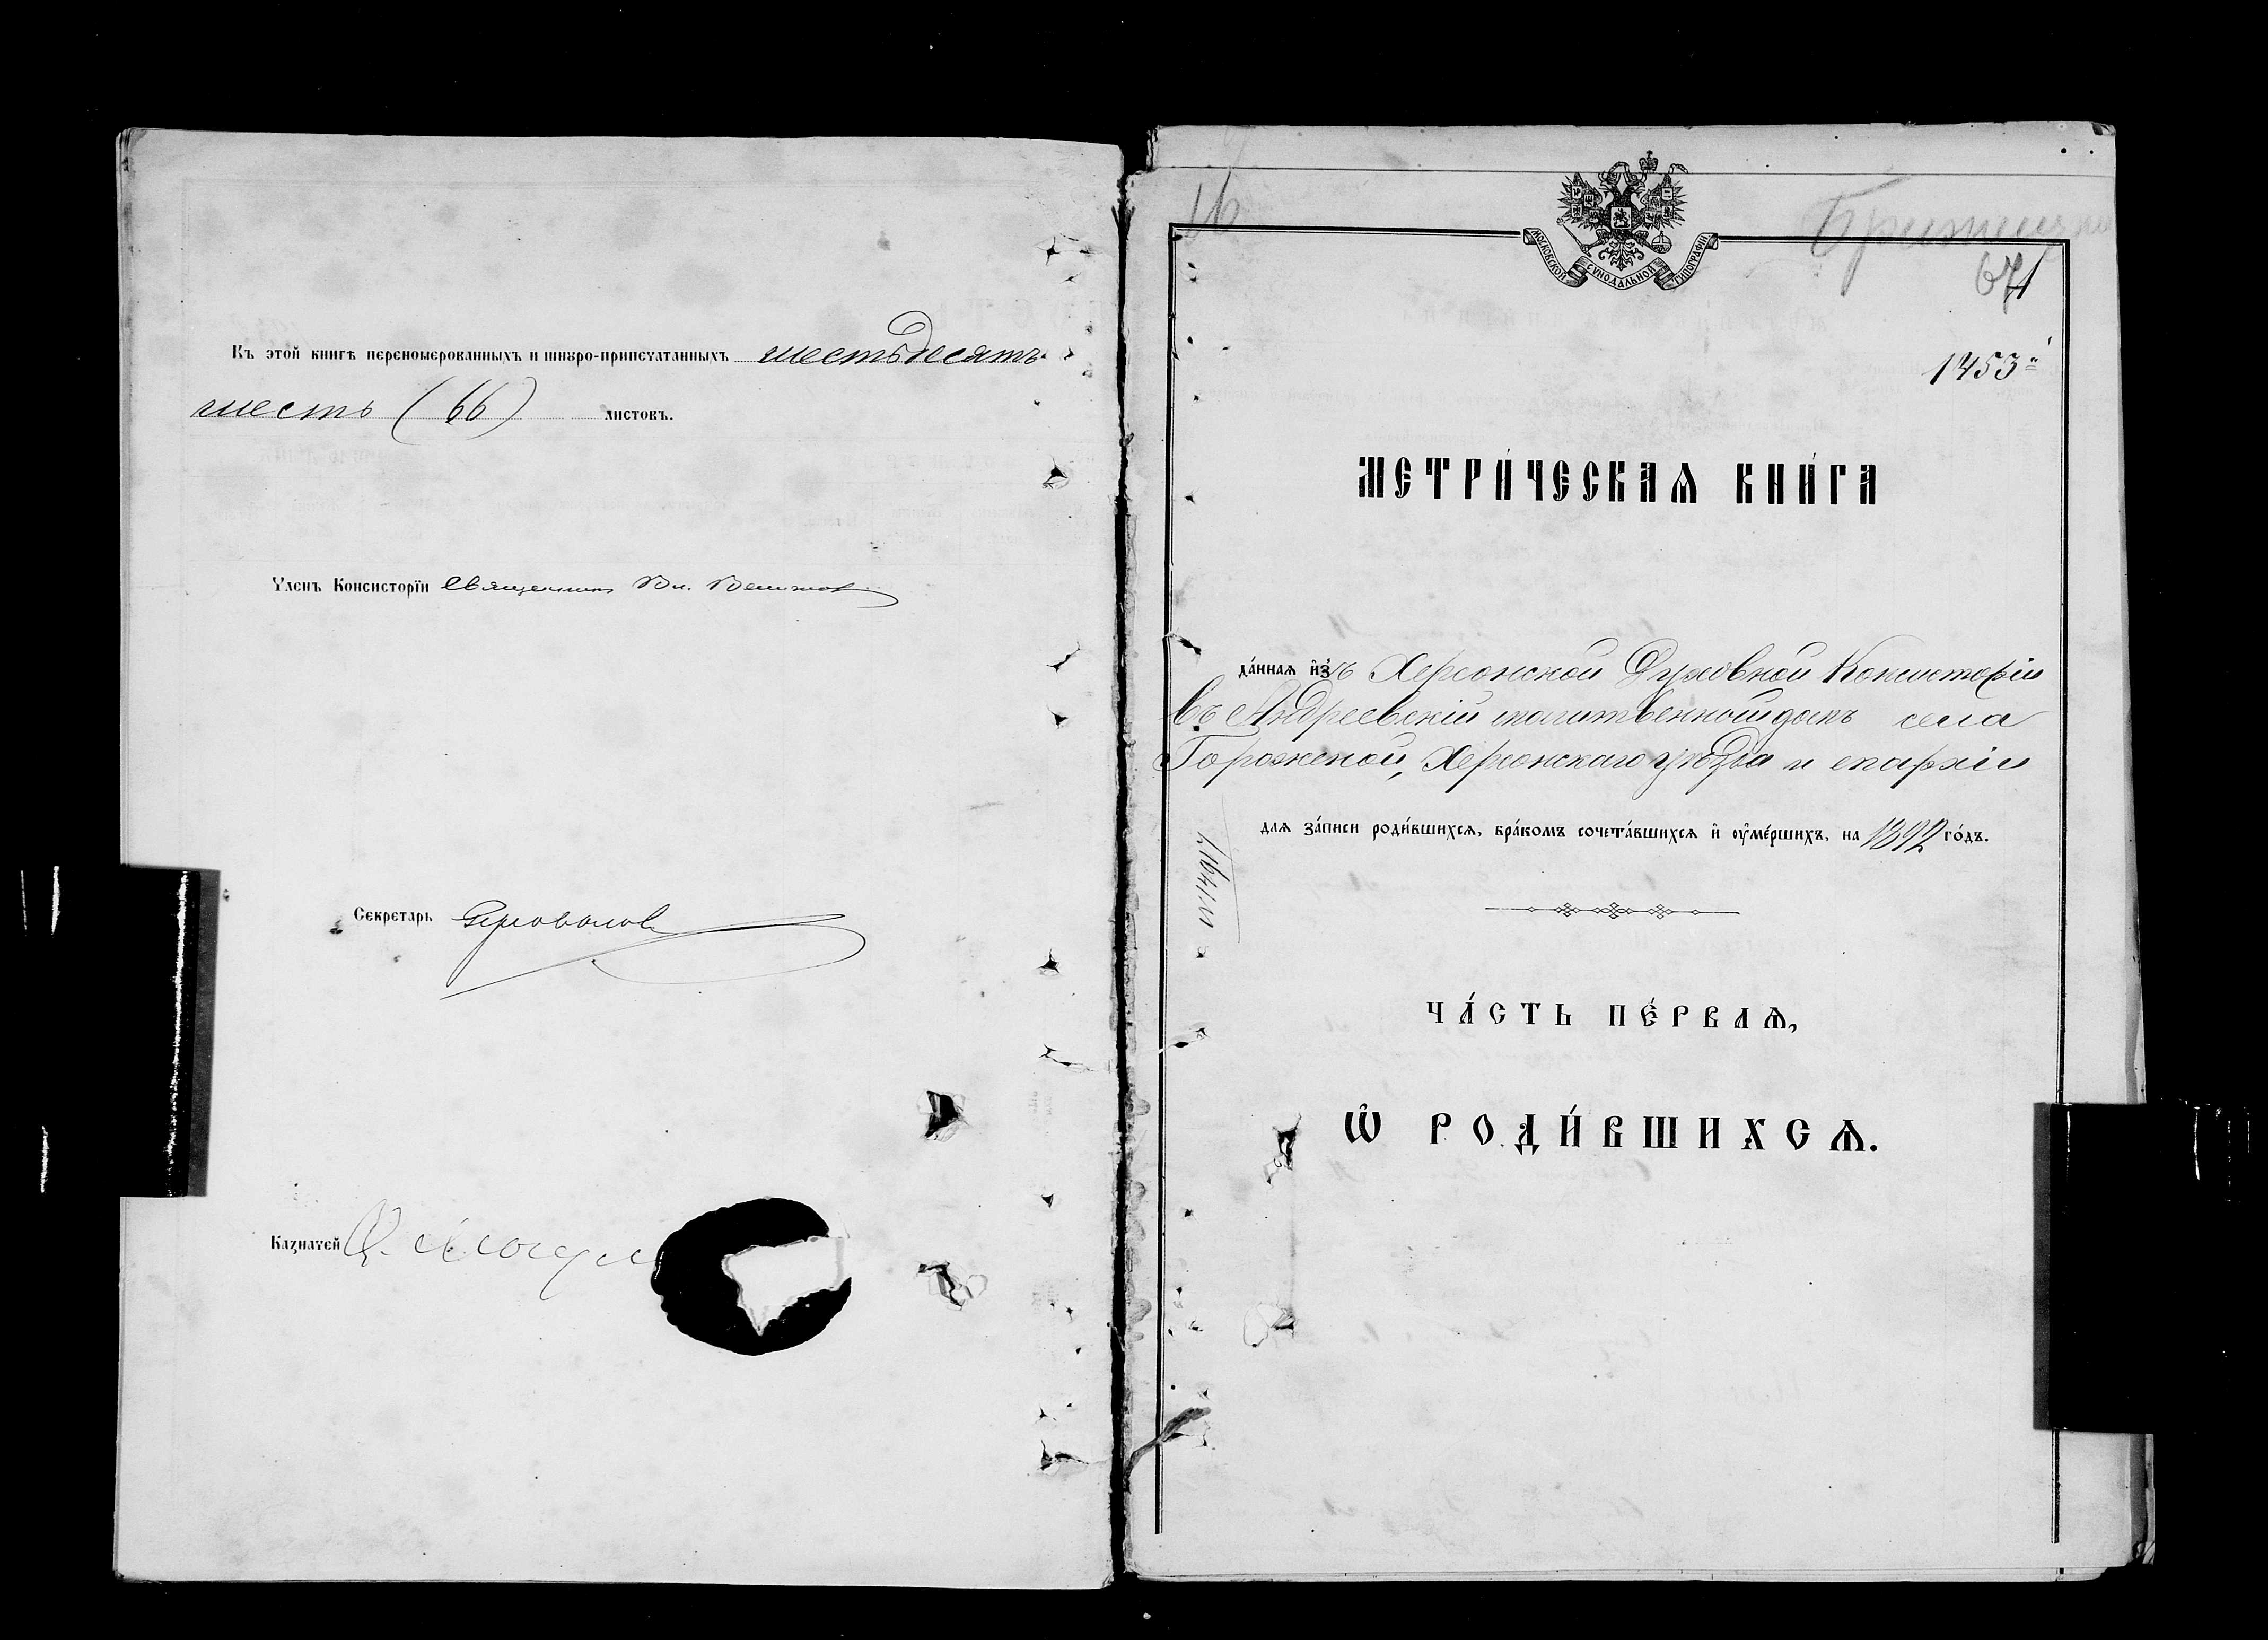 Къ этой книгѣ переномерованныхъ и шнуро-припечатанныхъ шестьдесятъ
шесть (66) листовъ.
Членъ Консисторіи Священникъ Вл.
Секретарь
Казначей
16
МОСКОВСКОЙ СѴНОДАЛЬНОЙ ТИПОГРАФІИ
1453
МЕТРИ́ЧЕСКАѦ КНИ́ГА
да́ннаѧ и҆зъ Херсонской Духовной Консисторіи
въ Андреевскій молитвенный домъ села
Горожской, Херсонскаго уѣзда и епархіи
длѧ за́писи роди́вшихсѧ, бра́комъ сочета́вшихсѧ и҆ ᲂу҆ме́ршихъ, на 1892 го́дъ.
ЧА́СТЬ ПЕ́РВАѦ,
Ѽ РОДИ́ВШИХСѦ.